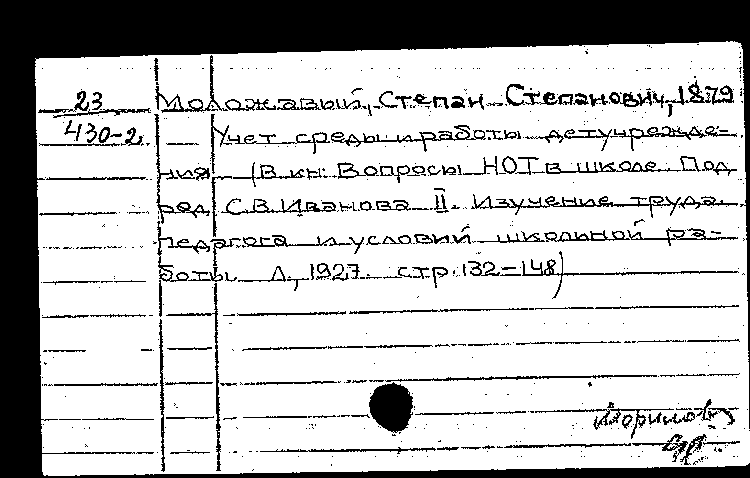 23
430-2.
Моложавый, Степан Степанович, 1879
Учет среды и работы детучрежде-
ния (В кн: Вопросы НОТ в школе. Под
ред. С.В. Иванова II. Изучение труда
педагога и условий школьной ра-
боты Л., 1927. стр. 132-148)